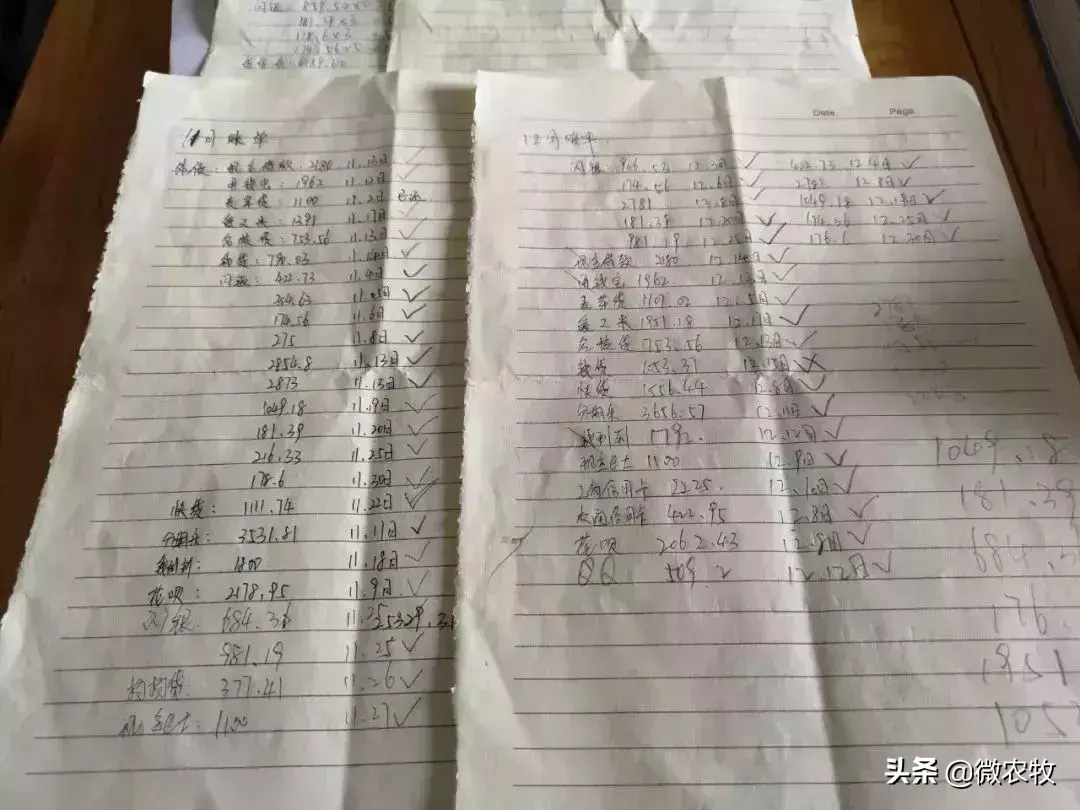 闪银：859.54×
181.39×3
178.6×3
174.56×5
11月账单
外债：现金借款 2180 11.13日✓
用钱宝：1962 11.12日✓
1100 11.2日 已还
爱又米：1391 11.17日✓
名校贷：753.56 11.13日✓
钱贷：798.83 11.14日✓
闪银：422.73 11.4日✓
354.63 11.5日✓
174.56 11.6日✓
275 11.8日✓
2854.8 11.13日✓
2873 11.13日✓
1049.18 11.19日✓
181.39 11.20日✓
216.33 11.25日✓
178.6 11.30日✓
快贷：1111.74 11.22日✓
分期乐：3531.81 11.11日✓
1800 11.18日✓
花呗：2178.95 11.9日✓
闪银 684.36 11.25 25329.31
981.19 11.25✓
377.41 11.26✓
现金巴士：1100 11.27✓
Date. Page.
12月账单
闪银：906.52 12.3日✓ 422.73 12.4日✓
174.56 12.6日✓ 2781 12.8日✓
2781 12.8日✓ 1049.18 12.19日✓
181.39 12.20日✓ 684.56 12.25日✓
981.19 12.25日✓ 176.6 12.30日✓
现金借款 2180 12.14日✓
用钱宝 1962. 12.12日✓
1109.02 12.15日✓
爱又米 1951.18 12.17日✓
名校贷 753.56 12.13日✓
钱贷 1053.37 12.15日✗
快贷 1556.44 12.8日✓
分期乐 3656.57 12.11日✓
1792. 12.12日✓
现金巴士 1100 12.9日✓
工商信用卡 2225. 12.10日✓
信用卡 422.95 12.8日✓
花呗 2062.43 12.9日✓
QQ 509.2 12.12日✓
1049.18
181.39
684.5
176.
1951
105
头条 @微农牧